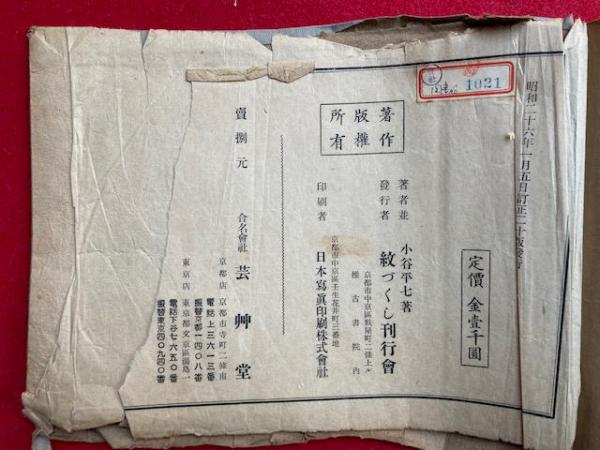 昭和二十六年一月五日訂正二十版發行
1021
定價 金壹千圓
著作
版權
所有
小谷平七著
著者並
發行者 紋づくし刊行會
京都市中京區麩屋町二條上ル
推古書院内
印刷者 日本寫眞印刷株式會社
京都市中京區壬生花井町三番地
賣捌元 合名會社 芸艸堂
京都店 京都市寺町二條南
電話上三六一三番
振替京都一四〇八番
東京店 東京都文京區湯島一
電話下谷七六五〇番
振替東京四〇九四〇番